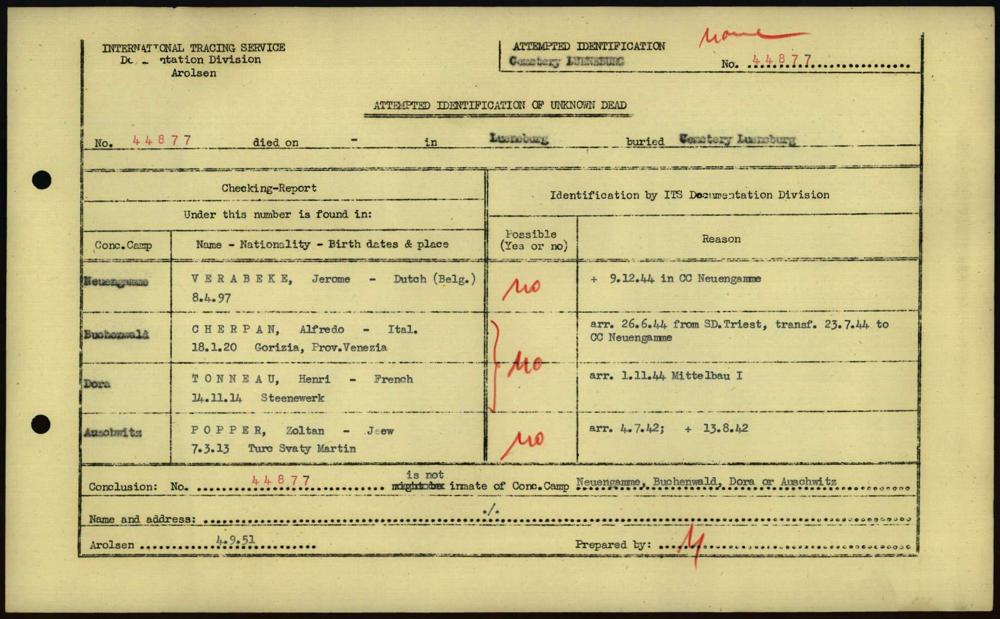 INTERNATIONAL TRACING SERVICE
Documentation Division
Arolsen
None
ATTEMPTED IDENTIFICATION
Cemetery LUENEBURG
No. 44877
ATTEMPTED IDENTIFICATION OF UNKNOWN DEAD
No. 44877 died on - in Lueneburg buried Cemetery Lueneburg
Checking-Report
Under this number is found in:
Identification by ITS Documentation Division
Conc.Camp
Name - Nationality - Birth dates & place
Possible
(Yes or no)
Reason
Neuengamme
VERABEKE, Jerome - Dutch (Belg.)
8.4.97
no
+ 9.12.44 in CC Neuengamme
Buchenwald
CHERPAN, Alfredo - Ital.
18.1.20 Gorizia, Prov.Venezia
no
arr. 26.6.44 from SD.Triest, transf. 23.7.44 to
CC Neuengamme
Dora
TONNEAU, Henri - French
14.11.14 Steenewerk
arr. 1.11.44 Mittelbau I
Auschwitz
POPPER, Zoltan - Jeew
7.3.13 Turc Svaty Martin
no
arr. 4.7.42; + 13.8.42
is not
Conclusion: No. 44877 inmate of Conc.Camp Neuengamme, Buchenwald, Dora or Auschwitz
Name and address: ./.
Arolsen 4.9.51
Prepared by: